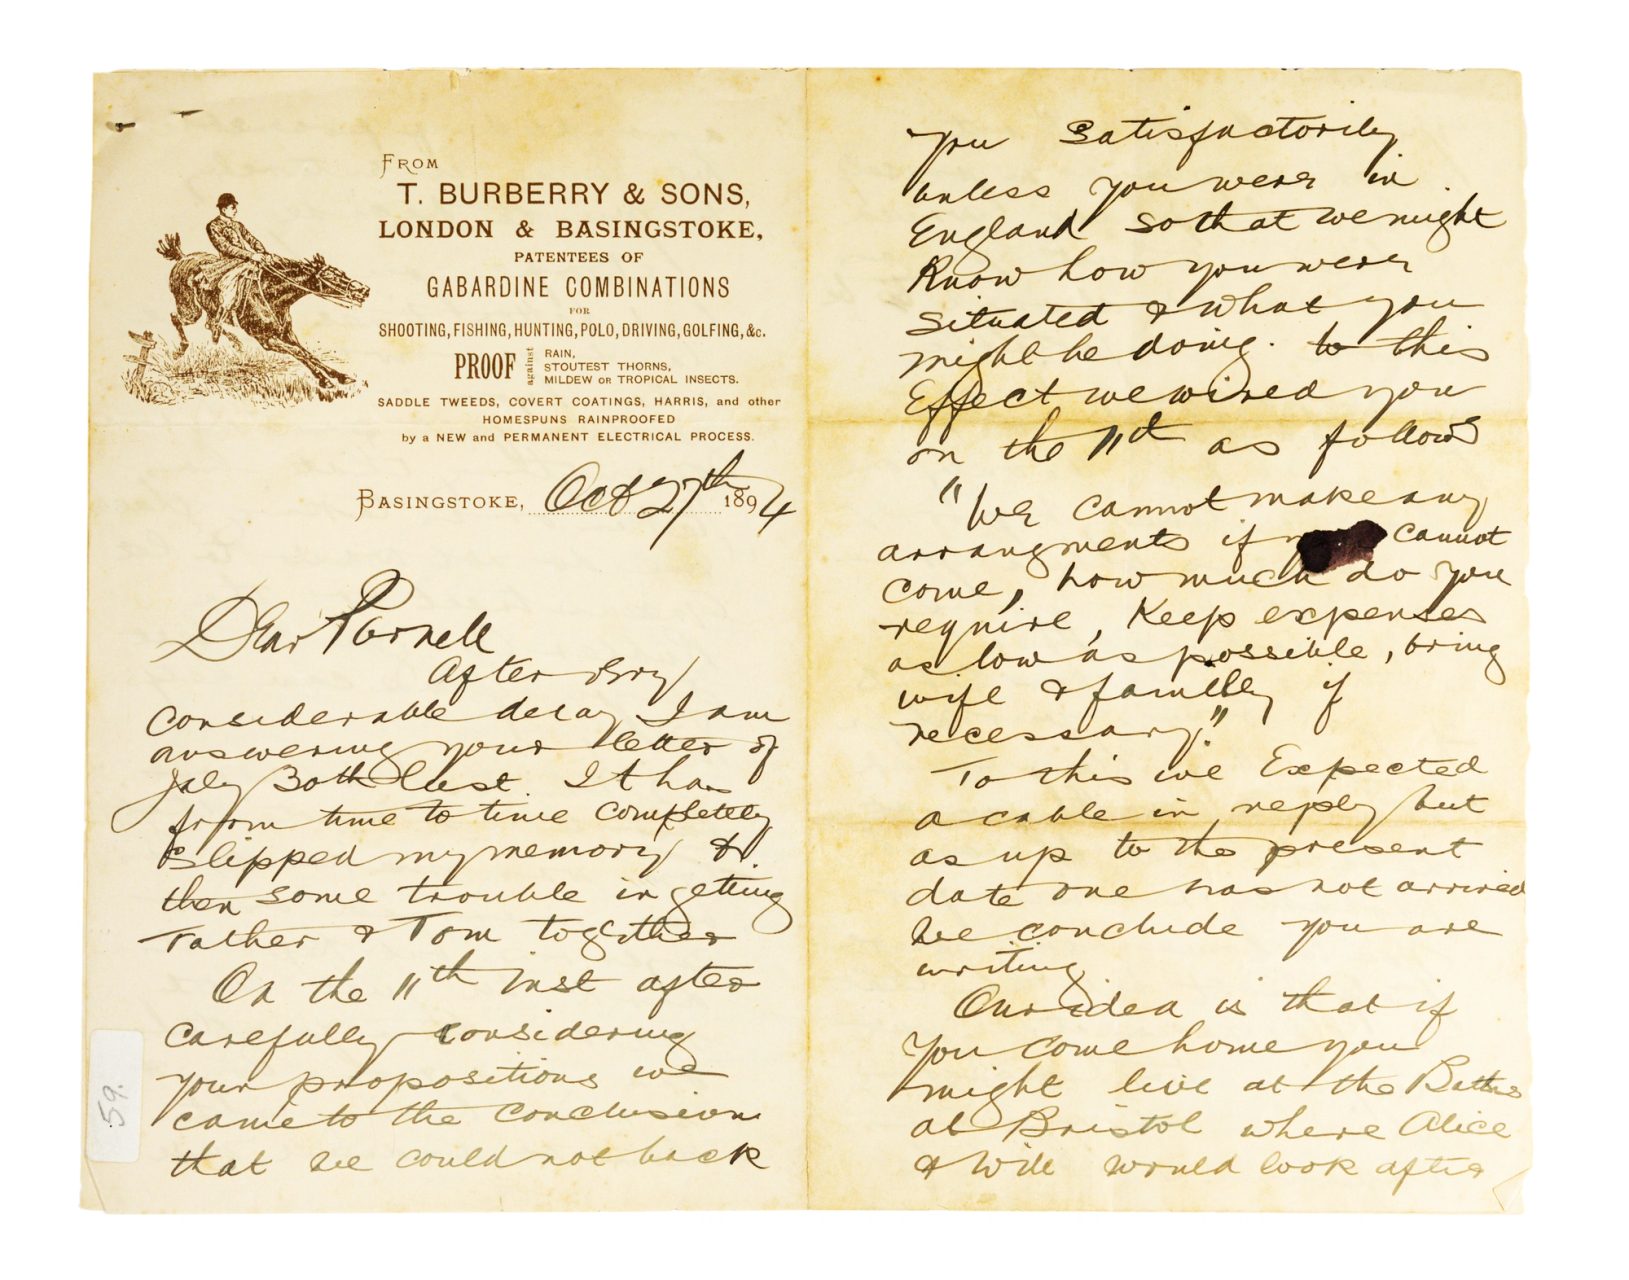 FROM
T. BURBERRY & SONS,
LONDON & BASINGSTOKE,
PATENTEES OF
GABARDINE COMBINATIONS
FOR
SHOOTING, FISHING, HUNTING, POLO, DRIVING, GOLFING, &c.
PROOF against RAIN,
STOUTEST THORNS,
MILDEW OR TROPICAL INSECTS.
SADDLE TWEEDS, COVERT COATINGS, HARRIS, and other
HOMESPUNS RAINPROOFED
by a NEW and PERMANENT ELECTRICAL PROCESS.
BASINGSTOKE, Oct 27th 1894
Dear Parnell
After
considerable delay I am
answering your letter of
July 30th last. It has
from time to time completely
slipped my memory &
then some trouble in getting
Father & Tom together
On the 11th inst after
carefully considering
your propositions we
came to the conclusion
that we could not back
59.
you satisfactorily
unless you were in
England so that we might
Know how you were
situated & what you
might be doing. to this
Effect we wired you
on the 11th as follows
"We cannot make any
arrangments if cannot
come, how much do you
require, Keep expenses
as low as possible, bring
wife & familly if
necessary."
To this we Expected
a cable in reply but
as up to the present
date one has not arrived
we conclude you are
writing
Our idea is that if
you come home you
might live at the
at Bristol where Alice
& Will would look after